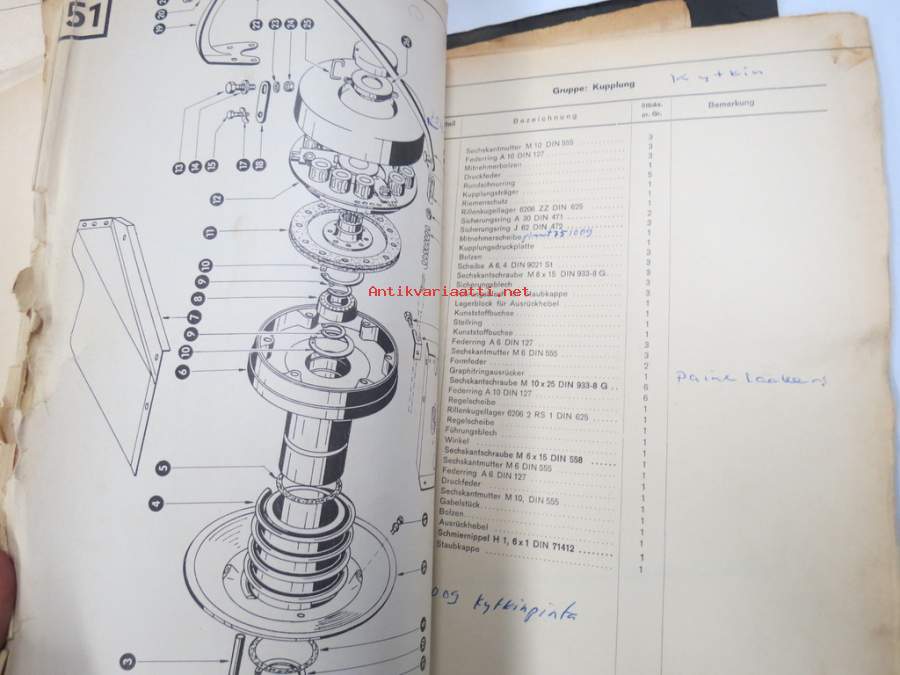 51
20
19
22
23
24
25
26
13
14
15
17
18
12
11
10
9
8
7
9
10
6
5
4
3
Gruppe: Kupplung Kytkin
teil Bezeichnung Stück. pr. Gr. Bemerkung
Sechskantmutter M 10 DIN 555 3
Federring A 10 DIN 127 3
Mitnehmerbolzen 3
Druckfeder 1
Rundschnurring 5
Kupplungsträger 1
Riemenschutz 1
Rillenkugellager 6206 ZZ DIN 625 1
Sicherungsring A 30 DIN 471 2
Sicherungsring J 62 DIN 472 3
Mitnehmerscheibe 1
Kupplungsdruckplatte 1
Bolzen 3
Scheibe A 6,4 DIN 9021 St 3
Sechskantschraube M 6 x 15 DIN 933-8 G 3
Sicherungsblech 3
Staubkappe 3
Lagerblock für Ausrückhebel 1
Kunststoffbuchse 1
Stellring 1
Kunststoffbuchse 1
Federring A 6 DIN 127 3
Sechskantmutter M 6 DIN 555 3
Formfeder 2
Graphitringausrücker 1
Sechskantschraube M 10 x 25 DIN 933-8 G 6
Federring A 10 DIN 127 6
Regelscheibe 1
Rillenkugellager 6206 2 RS 1 DIN 625 1
Regelscheibe 1
Führungsblech 1
Winkel 1
Sechskantschraube M 6 x 15 DIN 558 1
Sechskantmutter M 6 DIN 555 1
Federring A 6 DIN 127 1
Druckfeder 1
Sechskantmutter M 10, DIN 555 1
Gabelstück 1
Bolzen 1
Ausrückhebel 1
Schmiernippel H 1, 6 x 1 DIN 71412 1
Staubkappe 1
009 Kytkinpinta
Antikvariaatti.net